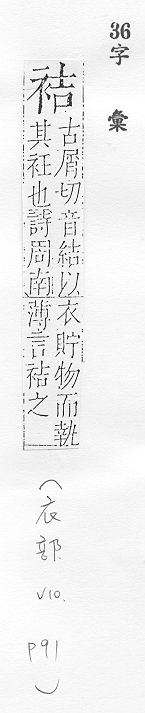 36字彙
袺
古屑切音結以衣貯物而執
其衽也詩周南薄言袺之
（衣部 V10. P91）